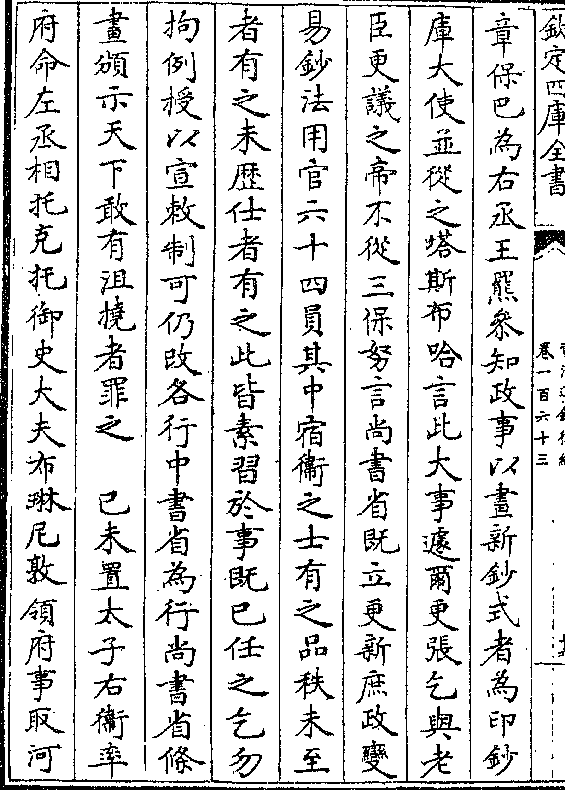 欽定四庫全書
卷一百六十三
章保巴為右丞王羆參知政事以畫新鈔式者為印鈔
庫大使並從之塔斯布哈言此大事遽爾更張乞與老
臣更議之帝不從三保努言尚書省既立更新庶政變
易鈔法用官六十四員其中宿衞之士有之品秩未至
者有之未歷仕者有之此皆素習於事既已任之乞勿
拘例授以宣敕制可仍改各行中書省為行尚書省條
畫頒示天下敢有沮撓者罪之　己未置太子右衞率
府命左丞相托克托御史大夫布琳尼敦領府事取河